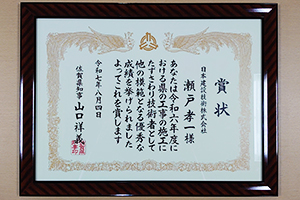 賞状
日本建設技術株式会社
瀬戸孝一様
あなたは令和六年度に
おける県の工事の施工に
たずさわり技術者として
他の模範となる優秀な
成績を挙げられました
よってこれを賞します
令和七年八月四日
佐賀県知事 山口祥義